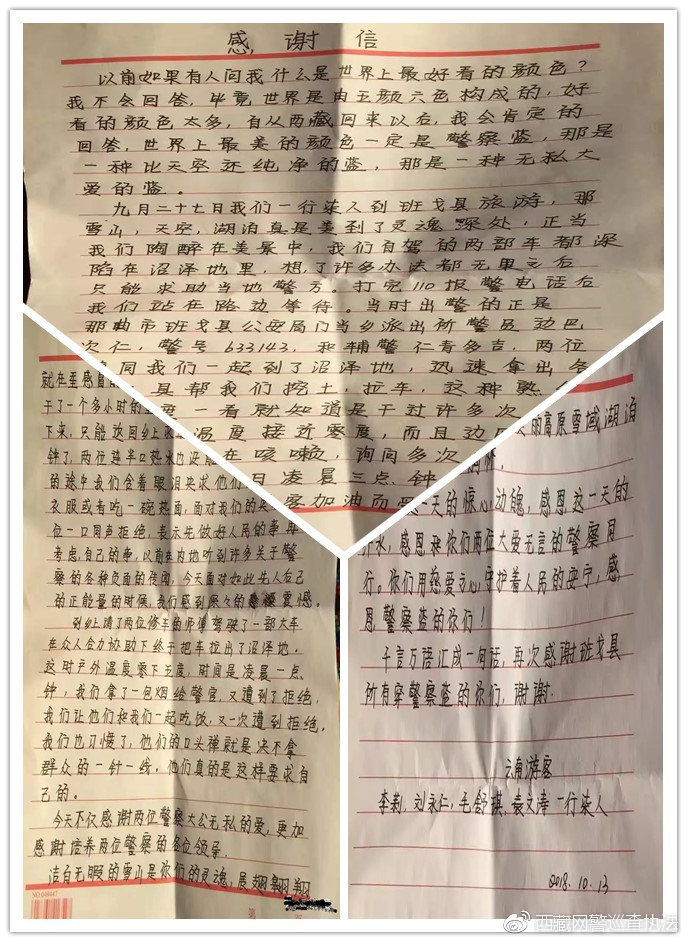 感谢信
以前如果有人问我什么是世界上最好看的颜色？
我不会回答，毕竟世界是由五颜六色构成的，好
看的颜色太多，自从西藏回来以后，我会肯定的
回答，世界上最美的颜色一定是警察蓝，那是
一种比天空还纯净的蓝，那是一种无私大
爱的蓝。
九月二十七日我们一行柒人到班戈县旅游，那
雪山，天空，湖泊真是美到了灵魂深处，正当
我们陶醉在美景中，我们自驾的两部车都深
陷在沼泽地里，想了许多办法都无果之后
只能求助当地警方。打完110报警电话后
我们站在路边等待。当时出警的正是
那曲市班戈县公安局门当乡派出所警员边巴
次仁，警号633143，和辅警仁青多吉，两位
同我们一起到了沼泽地，迅速拿出各
具帮我们挖土，拉车，这种熟
度一看就知道是干过许多次
温度接近零度，而且边
在咳嗽，询问多次
日凌晨三点钟
客加油而
就在至感
干了一个多小时的
下来，只能返回乡上
钟了，两位连半口热水也没
的途中我们含着眼泪央求他们
衣服或着吃一碗热面，面对我们的
位一口同声拒绝，表示先做好人民的事再
考虑自己的事，以前在内地听到许多关于警
察的各种负面的传闻，今天面对如此先人后己
的正能量的时候，我们感到深々的震憾。
到乡上请了两位修车的师傅驾驶了一部大车
在众人合力协助下终于把车拉出了沼泽地。
这时户外温度零下五度，时间是凌晨一点
钟，我们拿了一包烟给警官，又遭到了拒绝，
我们让他们和我们一起吃饭，又一次遭到拒绝。
我们也习惯了，他们的口头禅就是决不拿
群众的一针一线，他们真的是这样要求自
己的。
今天不仅感谢两位警察大公无私的爱，更加
感谢培养两位警察的各位领导。
洁白无暇的雪山是你们的灵魂，展翅翱翔
NO 048447
第
丽高原雪域湖泊
一天的惊心动魄，感恩这一天的
水，感恩和你们两位大爱无言的警察同
行，你们用慈爱之心，守护着人民的安宁，感
恩警察蓝的你们！
千言万语汇成一句话，再次感谢班戈县
所有穿警察蓝的你们，谢谢.
云南游客
李莉，刘永仁，毛舒琪，袁文涛一行柒人
2018.10.13
西藏网警巡查执法